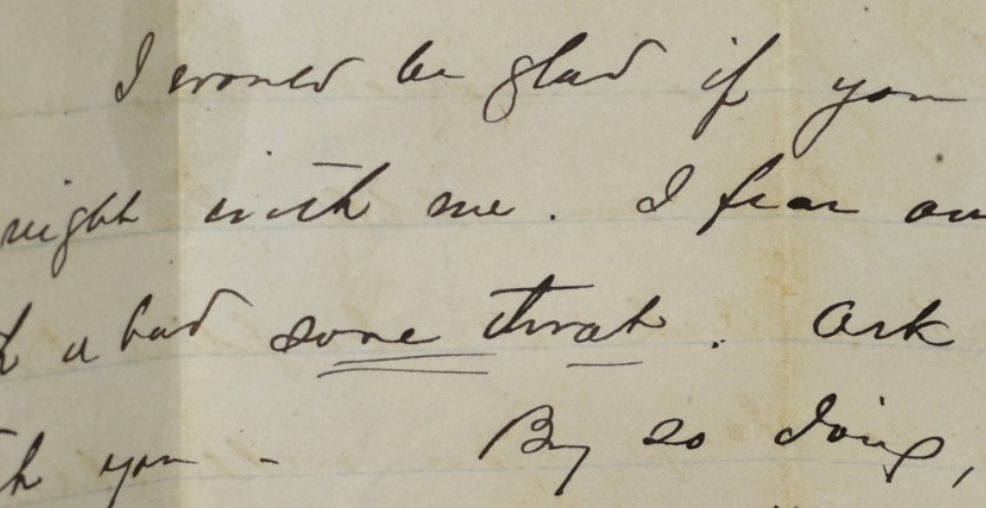 I would be glad if you
night with me. I fear
a bad sore throat. Ask
you - By so doing,